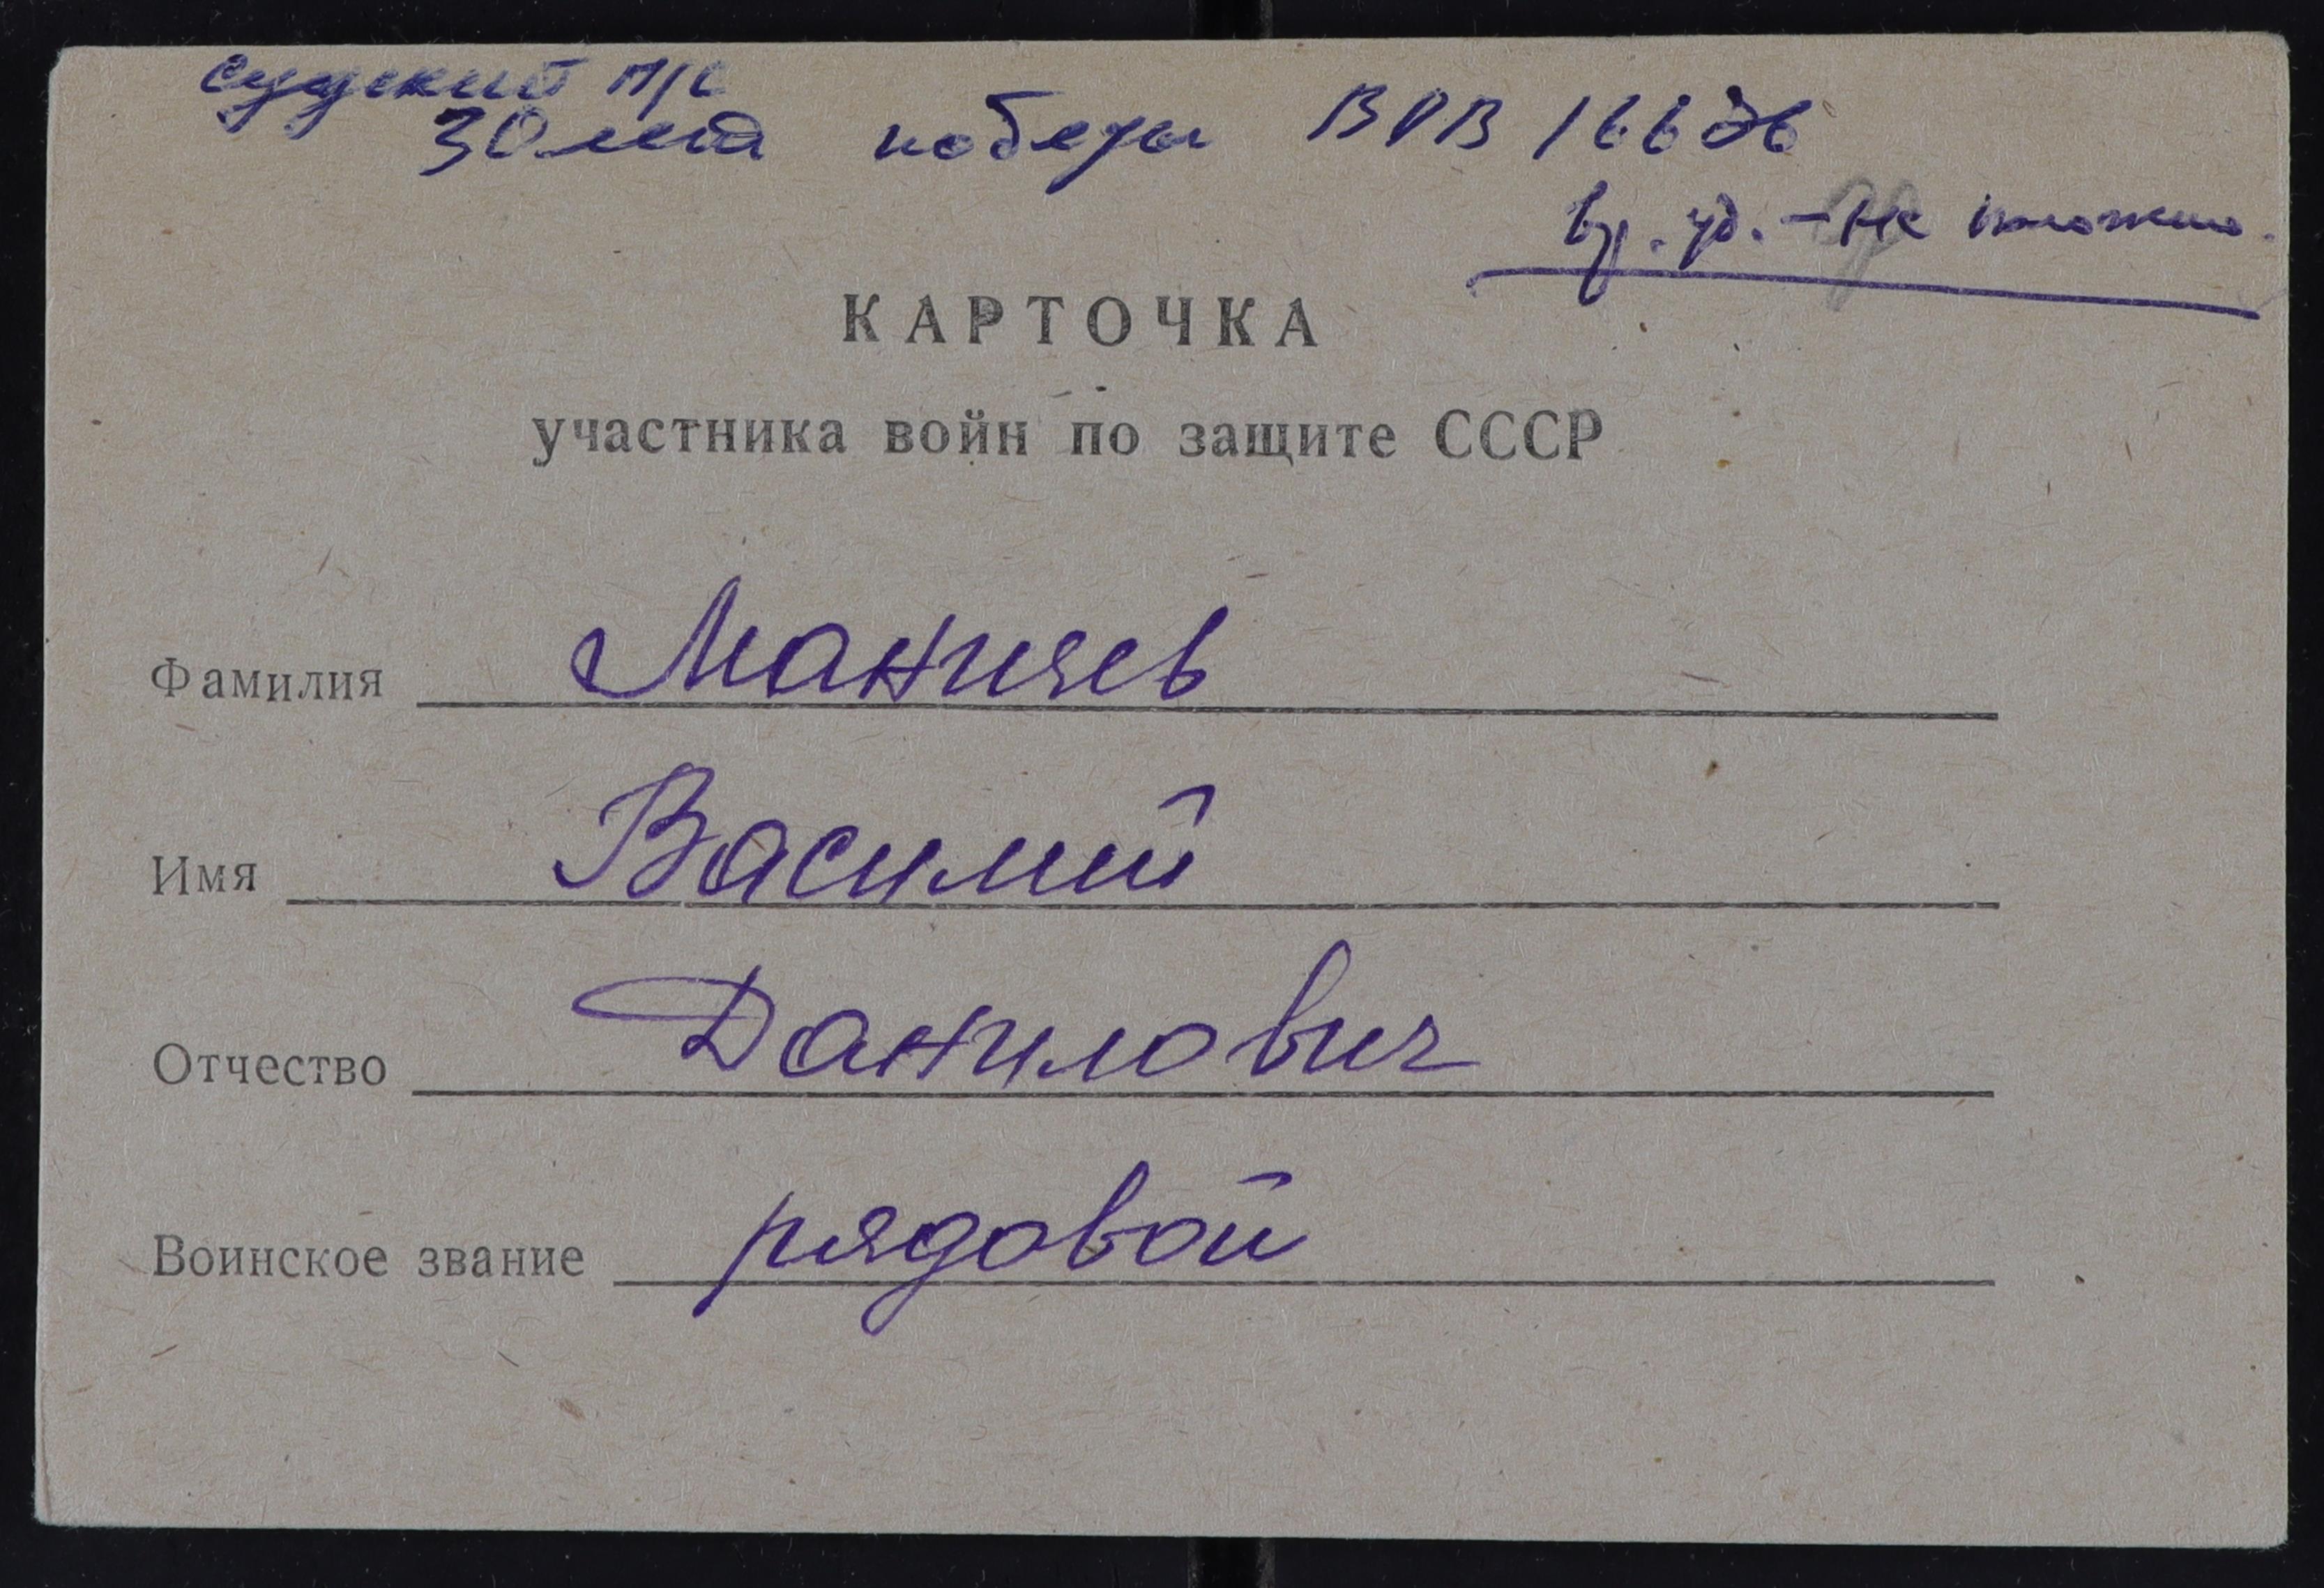 Судский п/с
30 лет победы ВОВ
вр. уд. - не
КАРТОЧКА
участника войн по защите СССР
Фамилия Маничев
Имя Василий
Отчество Данилович
Воинское звание рядовой